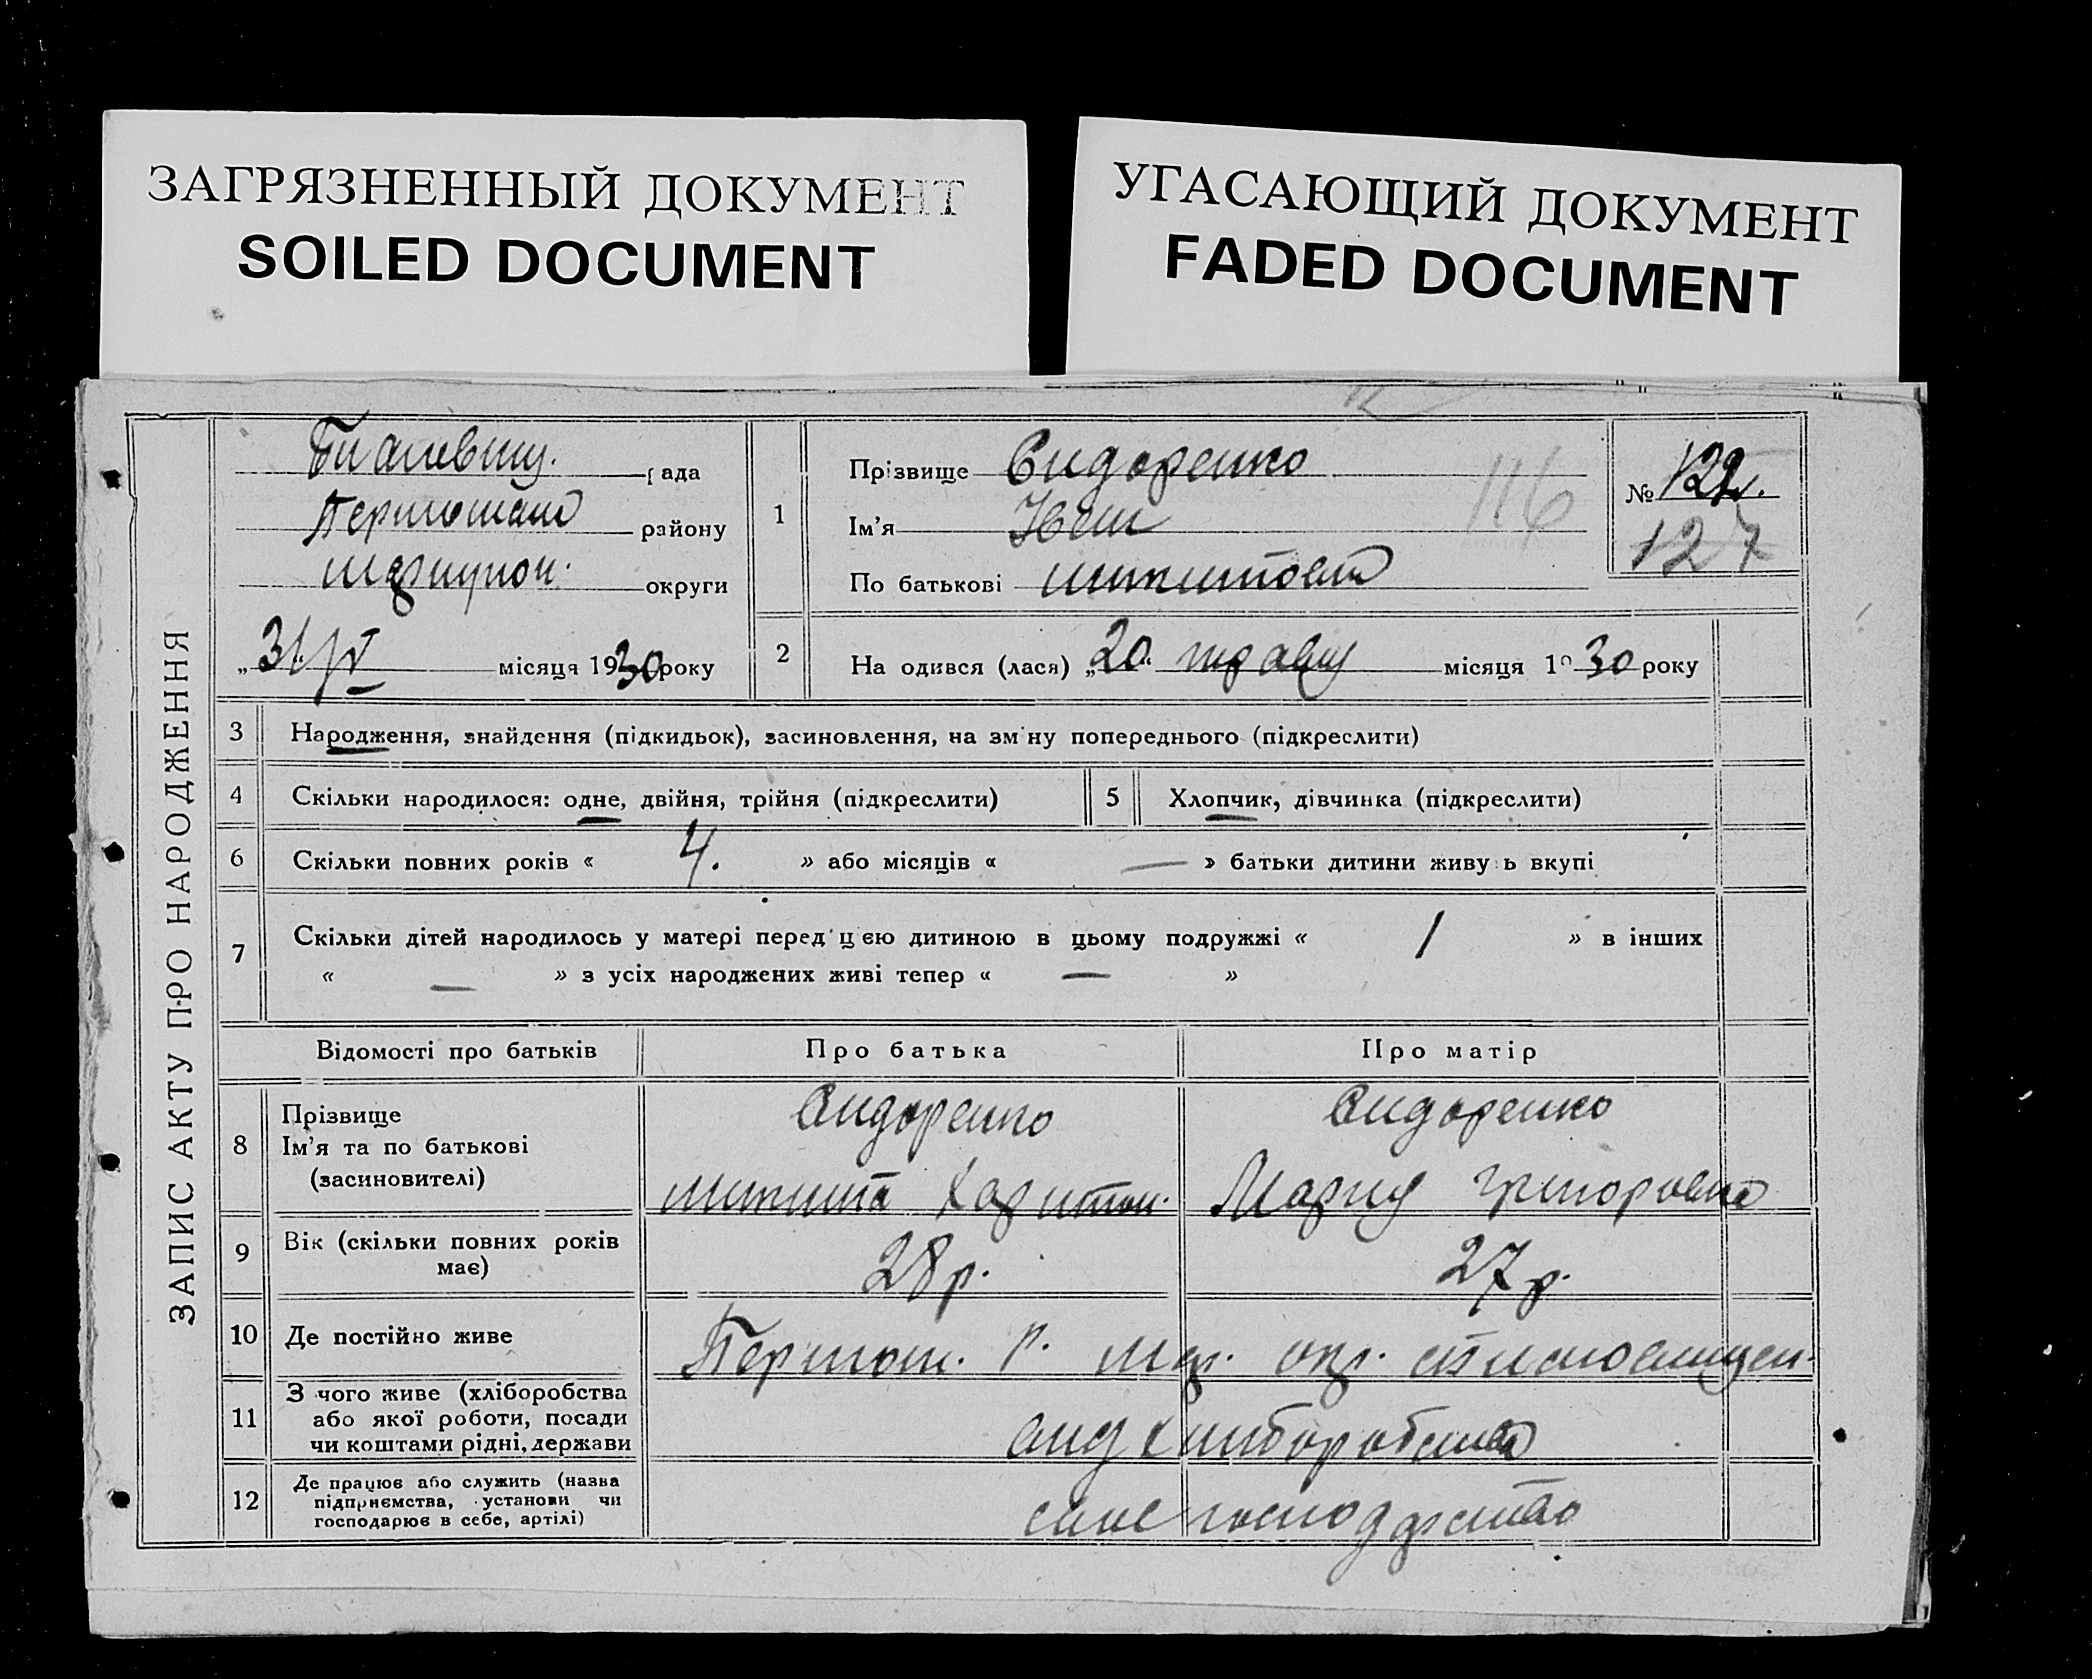 ЗАГРЯЗНЕННЫЙ ДОКУМЕНТ
SOILED DOCUMENT
УГАСАЮЩИЙ ДОКУМЕНТ
FADED DOCUMENT
ЗАПИС АКТУ ПРО НАРОДЖЕННЯ
рада
району
округи
„31" V місяця 1930 року
1
Прізвище Сидоренко
Ім'я
По батькові
116
№ 122
127
2
На одився (лася) „20" травня місяця 1930 року
3 Народження, знайдення (підкидьок), засиновлення, на зм ну попереднього (підкреслити)
4 Скільки народилося: одне, двійня, трійня (підкреслити)
5 Хлопчик, дівчинка (підкреслити)
6 Скільки повних років « 4. » або місяців « — » батьки дитини живу ь вкупі
7 Скільки дітей народилось у матері перед цею дитиною в цьому подружжі « 1 » в інших
« — » з усіх народжених живі тепер « — »
Відомості про батьків Про батька Про матір
8 Прізвище
Ім'я та по батькові
(засиновителі)
Сидоренко
Микита Харитон.
Сидоренко
Мария Григоровна
9 Вік (скільки повних років
має)
28 р. 27 р.
10 Де постійно живе
р. Мар. окр.
11 З чого живе (хліборобства
або якої роботи, посади
чи коштами рідні, держави
від хліборобства
12 Де працює або служить (назва
підприємства, установи чи
господарює в себе, артілі)
своє господарство